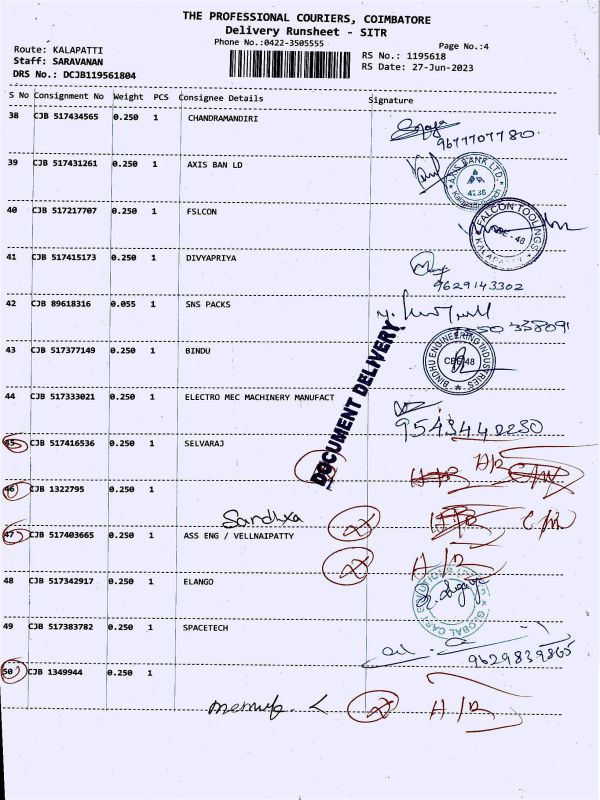 THE PROFESSIONAL COURIERS, COIMBATORE
Delivery Runsheet - SITR
Phone No.:0422-3505555
Page No.:4
Route: KALAPATTI
RS No.: 1195618
Staff: SARAVANAN
RS Date: 27-Jun-2023
DRS No.: DCJB119561804
S No Consignment No Weight PCS Consignee Details Signature
38 CJB 517434565 0.250 1 CHANDRAMANDIRI
9677707780
39 CJB 517431261 0.250 1 AXIS BAN LD
AXIS BANK LTD.
4136
40 CJB 517217707 0.250 1 FSLCON
FALCON TOOLINGS
KALAPATTI
41 CJB 517415173 0.250 1 DIVYAPRIYA
9629143302
42 CJB 89618316 0.055 1 SNS PACKS
43 CJB 517377149 0.250 1 BINDU
BINDHU ENGINEERING INDUSTRIES
CBE-48
44 CJB 517333021 0.250 1 ELECTRO MEC MACHINERY MANUFACT
DOCUMENT DELIVERY
45 CJB 517416536 0.250 1 SELVARAJ
46 CJB 1322795 0.250 1
47 CJB 517403665 0.250 1 ASS ENG / VELLNAIPATTY
48 CJB 517342917 0.250 1 ELANGO
49 CJB 517383782 0.250 1 SPACETECH
9629839865
50 CJB 1349944 0.250 1